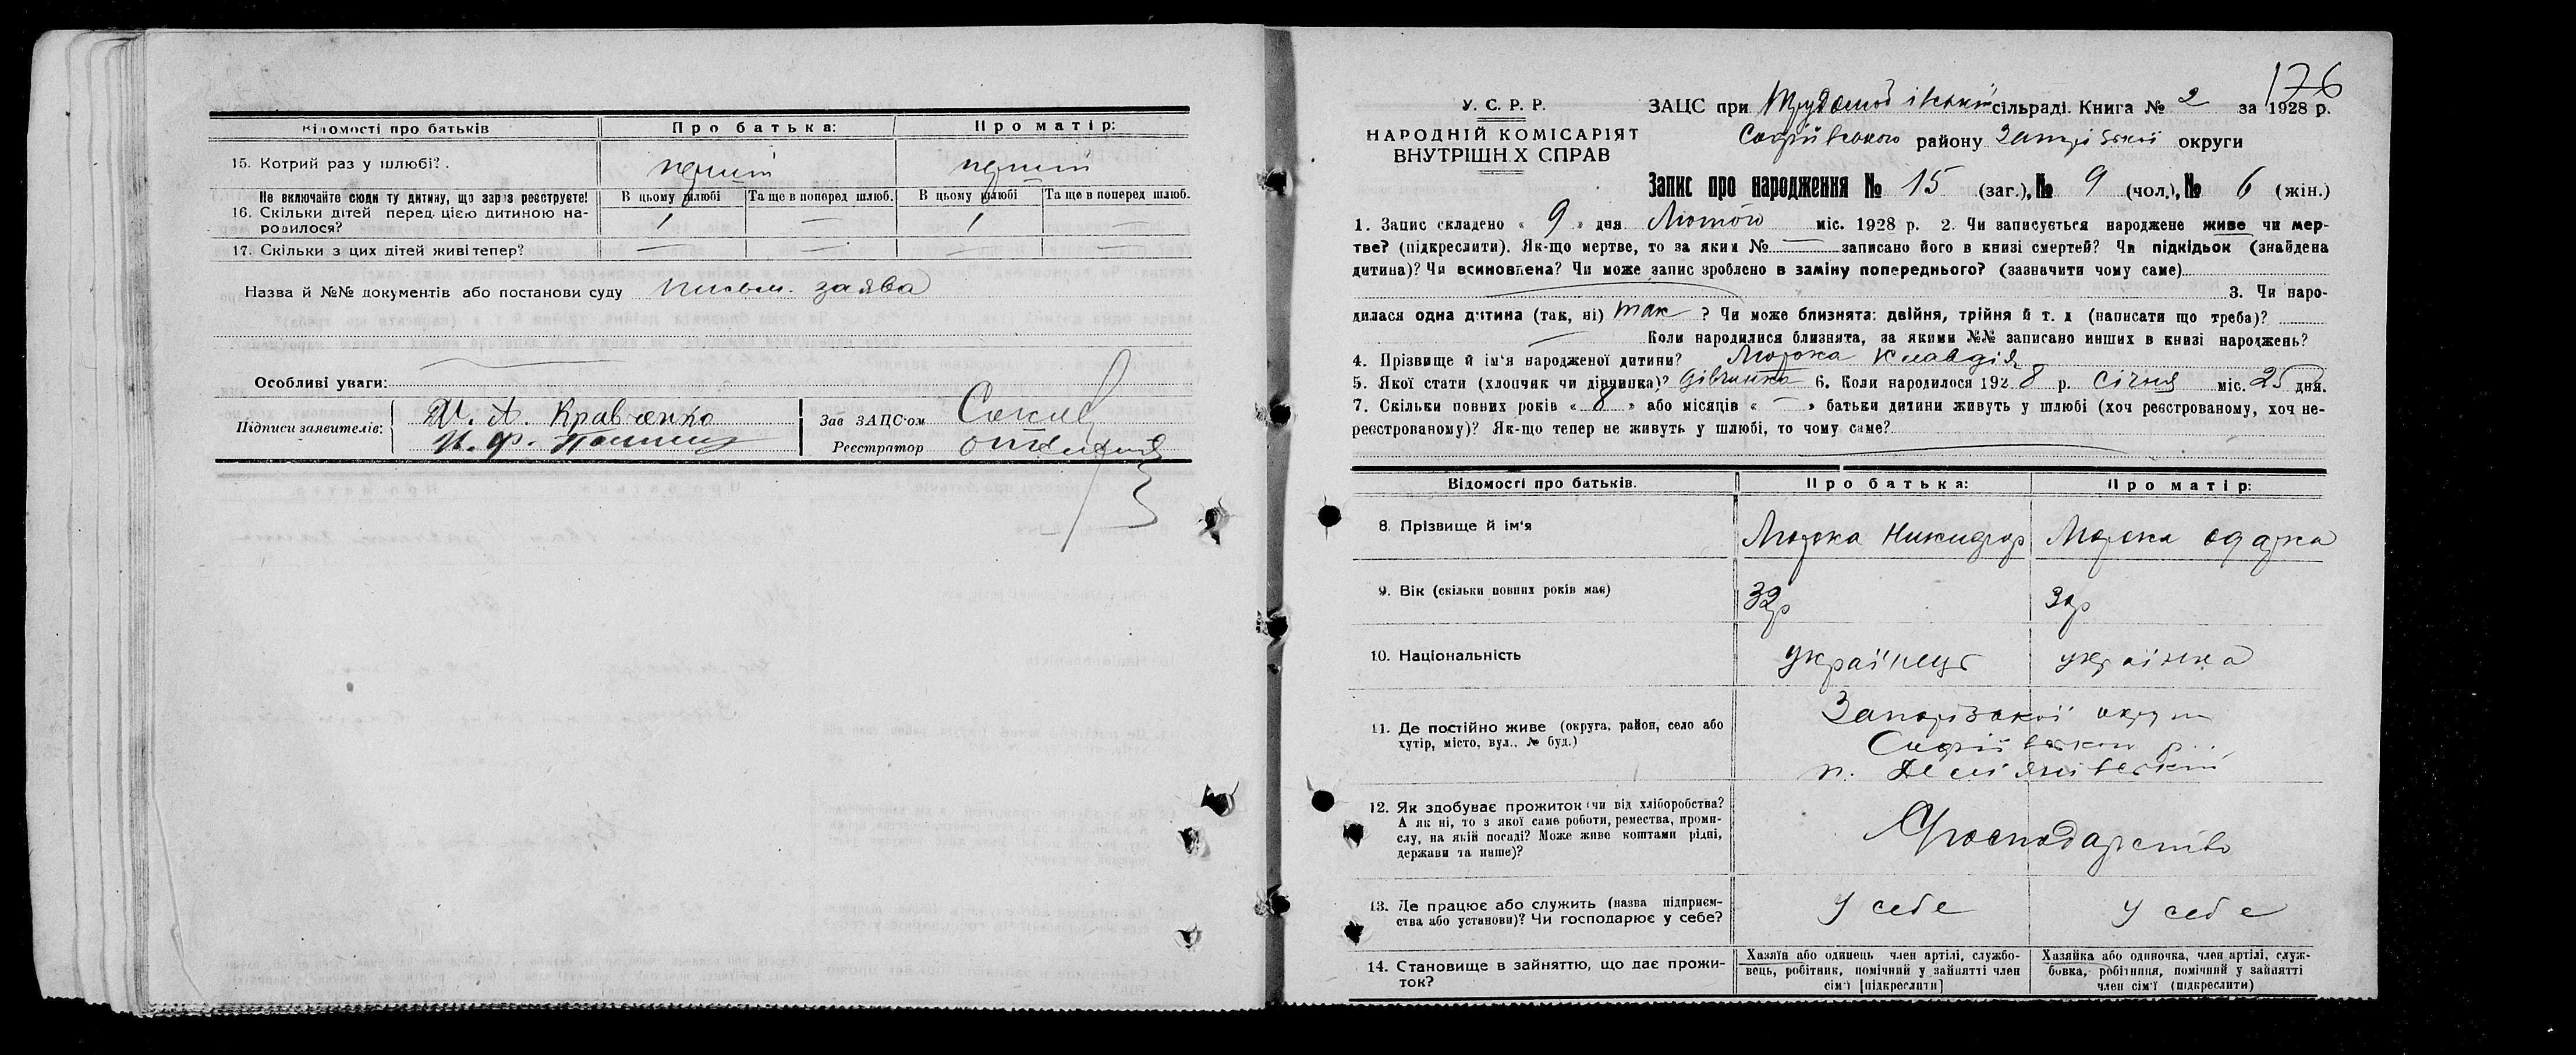 Відомості про батьків
Про батька:
Про матір:
15. Котрий раз у шлюбі?
перший
перший
Не включайте сюди ту дитину, що зараз реєструєте!
В цьому шлюбі
Та ще в поперед шлюб.
В цьому шлюбі
Та ще в поперед шлюб.
16. Скільки дітей перед цією дитиною на-
родилося?
1
—
1
—
17. Скільки з цих дітей живі тепер?
—
—
—
—
Назва й №№ документів або постанови суду письм. заява
Особливі уваги:
Підписи заявителів:
А. Кравченко
Зав ЗАЦС-ом
Реєстратор
176
У. С. Р. Р.
НАРОДНІЙ КОМІСАРІЯТ
ВНУТРІШНІХ СПРАВ
ЗАЦС при сільраді. Книга № 2 за 1928 р.
Софіївського району Запорізької округи
Запис про народження № 15 (заг.), № 9 (чол.), № 6 (жін.)
1. Запис складено « 9 » дня Лютого міс. 1928 р. 2. Чи записується народжене живе чи мер-
тве? (підкреслити). Як-що мертве, то за яким № — записано його в книзі смертей? Чи підкідьок (знайдена
дитина)? Чи всиновлена? Чи може запис зроблено в заміну попереднього? (зазначити чому саме)
3. Чи наро-
дилася одна дитина (так, ні) так ? Чи може близнята: двійня, трійня й т. д (написати що треба)?
— Коли народилися близнята, за якими №№ записано инших в книзі народжень?
4. Прізвище й ім'я народженої дитини? Клавдія
5. Якої стати (хлопчик чи дівчинка)? дівчинка 6. Коли народилося 1928 р. січня міс. 25 дня.
7. Скільки повних років « 8 » або місяців « — » батьки дитини живуть у шлюбі (хоч реєстрованому, хоч не-
реєстрованому)? Як-що тепер не живуть у шлюбі, то чому саме?
Відомості про батьків.
Про батька:
Про матір:
8. Прізвище й ім'я
Никифор
Одарка
9. Вік (скільки повних років має)
32р
10. Національність
українець
українка
11. Де постійно живе (округа, район, село або
хутір, місто, вул., № буд.)
Запорізької округи
Софіївськ р.
12. Як здобуває прожиток (чи від хліборобства?
А як ні, то з якої саме роботи, ремества, проми-
слу, на якій посаді? Може живе коштами рідні,
держави та инше)?
Господарство
13. Де працює або служить (назва підприєм-
ства або установи)? Чи господарює у себе?
У себе
У себе
14. Становище в зайняттю, що дає прожи-
ток?
Хазяїн або одинець член артілі, службо-
вець, робітник, помічний у зайнятті член
сім'ї [підкреслити]
Хазяйка або одиночка, член артілі, служ-
бовка, робітниця, помічний у зайнятті
член сім'ї (підкреслити)